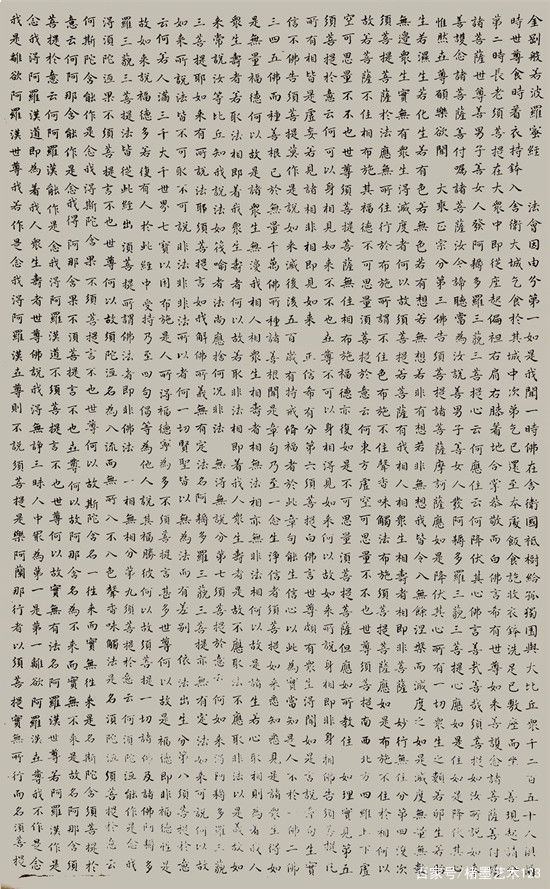 金剛般若波羅蜜經　法會因由分第一如是我聞一時佛在舍衛國祇樹給孤獨園與大比丘衆千二百五十人俱爾
時世尊食時着衣持鉢入舍衛大城乞食於其城中次第乞已還至本處飯食訖收衣鉢洗足已敷座而坐　善現起請分
第二時長老須菩提在大衆中即從座起偏袒右肩右膝着地合掌恭敬而白佛言希有世尊如來善護念諸菩薩善付囑
諸菩薩世尊善男子善女人發阿耨多羅三藐三菩提心云何應住云何降伏其心佛言善哉善哉須菩提如汝所說如來
善護念諸菩薩善付囑諸菩薩汝今諦聽當為汝說善男子善女人發阿耨多羅三藐三菩提心應如是住如是降伏其心
惟然世尊願樂欲聞　大乘正宗分第三佛告須菩提諸菩薩摩訶薩應如是降伏其心所有一切衆生之類若卵生若胎
生若濕生若化生若有色若無色若有想若無想若非有想非無想我皆令入無餘涅槃而滅度之如是滅度無量無數
無邊衆生實無衆生得滅度者何以故須菩提若菩薩有我相人相衆生相壽者相即非菩薩　妙行無住分第四復次
須菩提菩薩於法應無所住行於布施所謂不住色布施不住聲香味觸法布施須菩提菩薩應如是布施不住於相何以
故若菩薩不住相布施其福德不可思量須菩提於意云何東方虛空可思量不不也世尊須菩提南西北方四維上下虛
空可思量不不也世尊須菩提菩薩無住相布施福德亦復如是不可思量須菩提菩薩但應如所教住　如理實見分第五
須菩提於意云何可以身相見如來不不也世尊不可以身相得見如來何以故如來所說身相即非身相佛告須菩提凡
所有相皆是虛妄若見諸相非相即見如來　正信希有分第六須菩提白佛言世尊頗有衆生得聞如是言說章句生實
信不佛告須菩提莫作是說如來滅後後五百歲有持戒修福者於此章句能生信心以此為實當知是人不於一佛二佛
三四五佛而種善根已於無量千萬佛所種諸善根聞是章句乃至一念生淨信者須菩提如來悉知悉見是諸衆生得如是
無量福德何以故是諸衆生無復我相人相衆生相壽者相無法相亦無非法相何以故是諸衆生若心取相則為著我人
衆生壽者若取法相即著我人衆生壽者何以故若取非法相即著我人衆生壽者是故不應取法不應取非法以是義故如
來常說汝等比丘知我說法如筏喻者法尚應捨何況非法　無得無說分第七須菩提於意云何如來得阿耨多羅三藐
三菩提耶如來有所說法耶須菩提言如我解佛所說義無有定法名阿耨多羅三藐三菩提亦無有定法如來可說何以故
如來所說法皆不可取不可說非法非非法所以者何一切賢聖皆以無為法而有差別　依法出生分第八須菩提於意
云何若人滿三千大千世界七寶以用布施是人所得福德寧為多不須菩提言甚多世尊何以故是福德即非福德性是
故如來說福德多若復有人於此經中受持乃至四句偈等為他人說其福勝彼何以故須菩提一切諸佛及諸佛阿耨多
羅三藐三菩提法皆從此經出須菩提所謂佛法者即非佛法　一相無相分第九須菩提於意云何須陀洹能作是念我
得須陀洹果不須菩提言不也世尊何以故須陀洹名為入流而無所入不入色聲香味觸法是名須陀洹須菩提於意云
何斯陀含能作是念我得斯陀含果不須菩提言不也世尊何以故斯陀含名一往來而實無往來是名斯陀含須菩提於
意云何阿那含能作是念我得阿那含果不須菩提言不也世尊何以故阿那含名為不來而實無不來是故名阿那含須
菩提於意云何阿羅漢能作是念我得阿羅漢道不須菩提言不也世尊何以故實無有法名阿羅漢世尊若阿羅漢作是
念我得阿羅漢道即為着我人衆生壽者世尊佛說我得無諍三昧人中最為第一是第一離欲阿羅漢世尊我不作是念
我是離欲阿羅漢世尊我若作是念我得阿羅漢道世尊則不說須菩提是樂阿蘭那行者以須菩提實無所行而名須菩提
百家号/楮墨艺术123